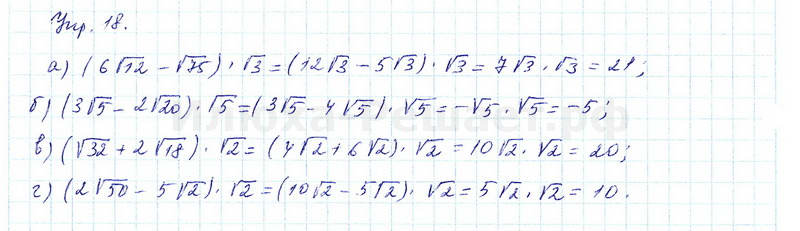 Упр. 18.
а) (6√12 − √75) · √3 = (12√3 − 5√3) · √3 = 7√3 · √3 = 21;
б) (3√5 − 2√20) · √5 = (3√5 − 4√5) · √5 = −√5 · √5 = −5;
в) (√32 + 2√18) · √2 = (4√2 + 6√2) · √2 = 10√2 · √2 = 20;
г) (2√50 − 5√2) · √2 = (10√2 − 5√2) · √2 = 5√2 · √2 = 10.